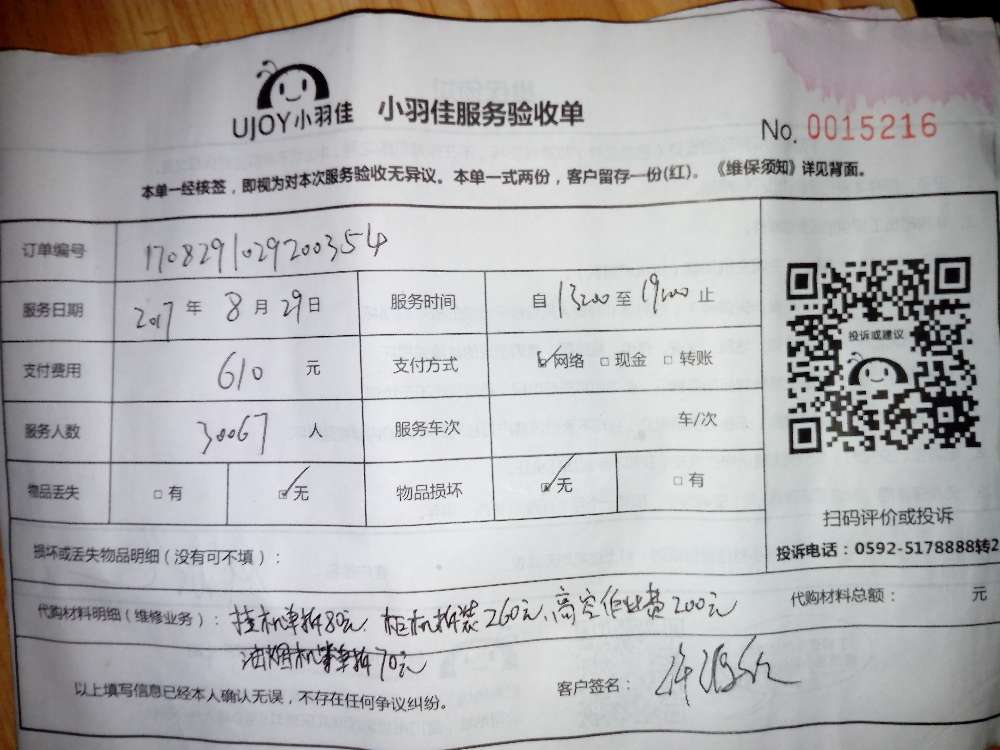 UJOY小羽佳 小羽佳服务验收单
No. 0015216
本单一经核签，即视为对本次服务验收无异议。本单一式两份，客户留存一份(红)。《维保须知》详见背面。
订单编号 170829102920035 54
服务日期 2017 年 8 月 29 日 服务时间 自 13:00 至 19:00 止
支付费用 610 元 支付方式 ☑网络 □现金 □转账
服务人数 30067 人 服务车次 车/次
物品丢失 □有 ☑无 物品损坏 ☑无 □有
投诉或建议
扫码评价或投诉
投诉电话：0592-5178888转2
损坏或丢失物品明细（没有可不填）：
代购材料明细（维修业务）：挂机单拆80元、柜机拆装260元、高空作业费200元 代购材料总额： 元
油烟机单拆70元
以上填写信息已经本人确认无误，不存在任何争议纠纷。 客户签名：